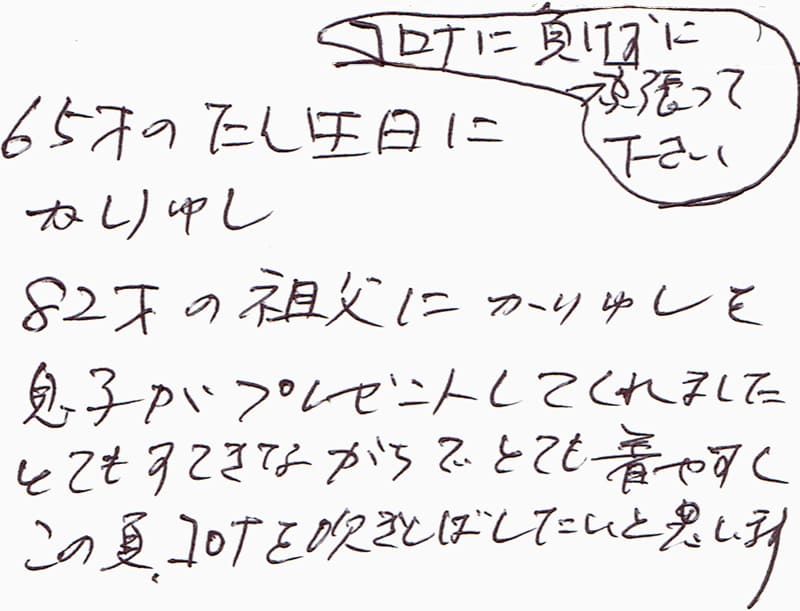 コロナに負けずに
頑張って
下さい
65才のたん生日に
かりゆし
82才の祖父にかりゆしを
息子がプレゼントしてくれました
とてもすてきながらでとても着やすく
この夏、コロナを吹きとばしたいと思います